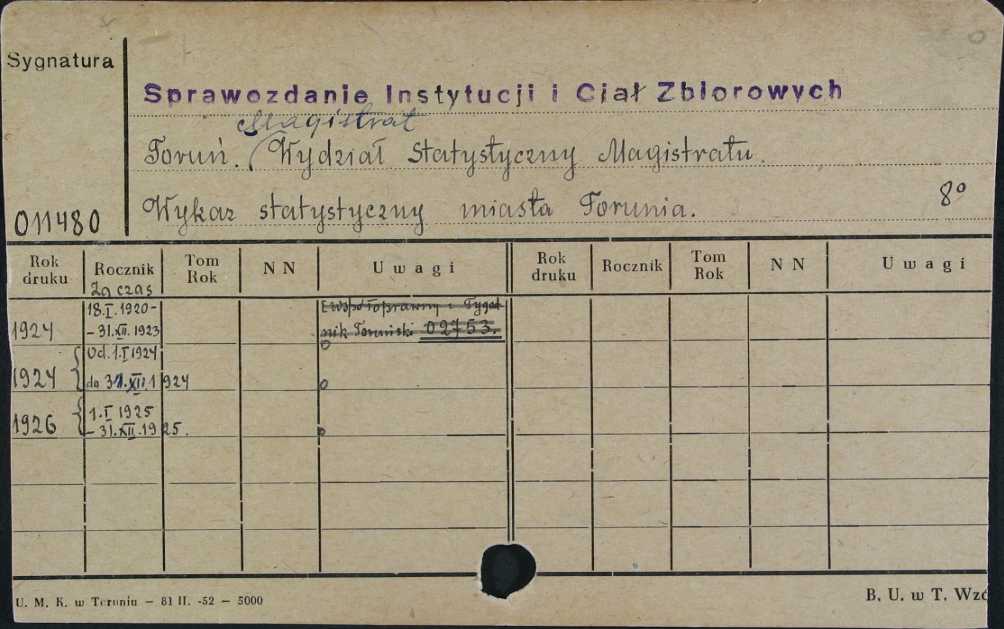 Sygnatura
Sprawozdanie Instytucji i Ciał Zbiorowych
Magistrat
Toruń. (Wydział Statystyczny Magistratu.
Wykaz statystyczny miasta Torunia.
8º
011480
Rok druku Rocznik Tom Rok N N Uwagi Rok druku Rocznik Tom Rok N N Uwagi
Za czas
18.I.1920-
1924 - 31.XII.1923
02753.
Od 1.I 1924
1924 do 31.XII.1924
1.I 1925
1926 - 31.XII.1925.
U. M. K. w Toruniu — 81 II. -52 — 5000
B. U. w T.